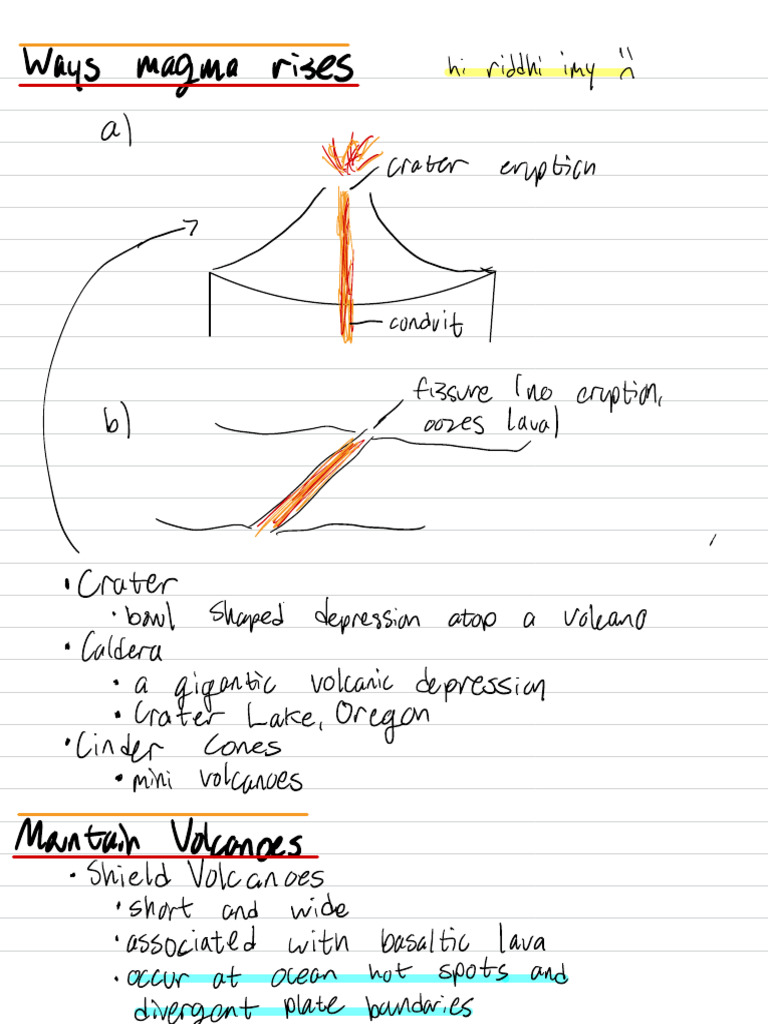 Ways magma rises
hi riddhi imy :(
a)
crater eruption
conduit
b)
fissure (no eruption,
oozes lava)
• Crater
• bowl shaped depression atop a volcano
• Caldera
• a gigantic volcanic depression
• Crater Lake, Oregon
• Cinder Cones
• mini volcanoes
Maintain Volcanoes
• Shield Volcanoes
• short and wide
• associated with basaltic lava
• occur at ocean hot spots and
divergent plate bandaries